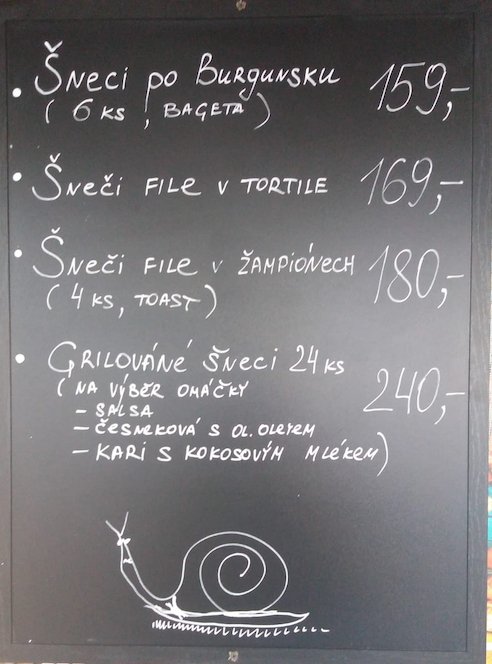 Šneci po Burgunsku 159,-
(6 ks, bageta)
Šneči file v tortile 169,-
Šneči file v žampiónech 180,-
(4 ks, toast)
Grilováné šneci 24 ks
(na výběr omáčky 240,-
- salsa
- česneková s ol. olejem
- kari s kokosovým mlékem)